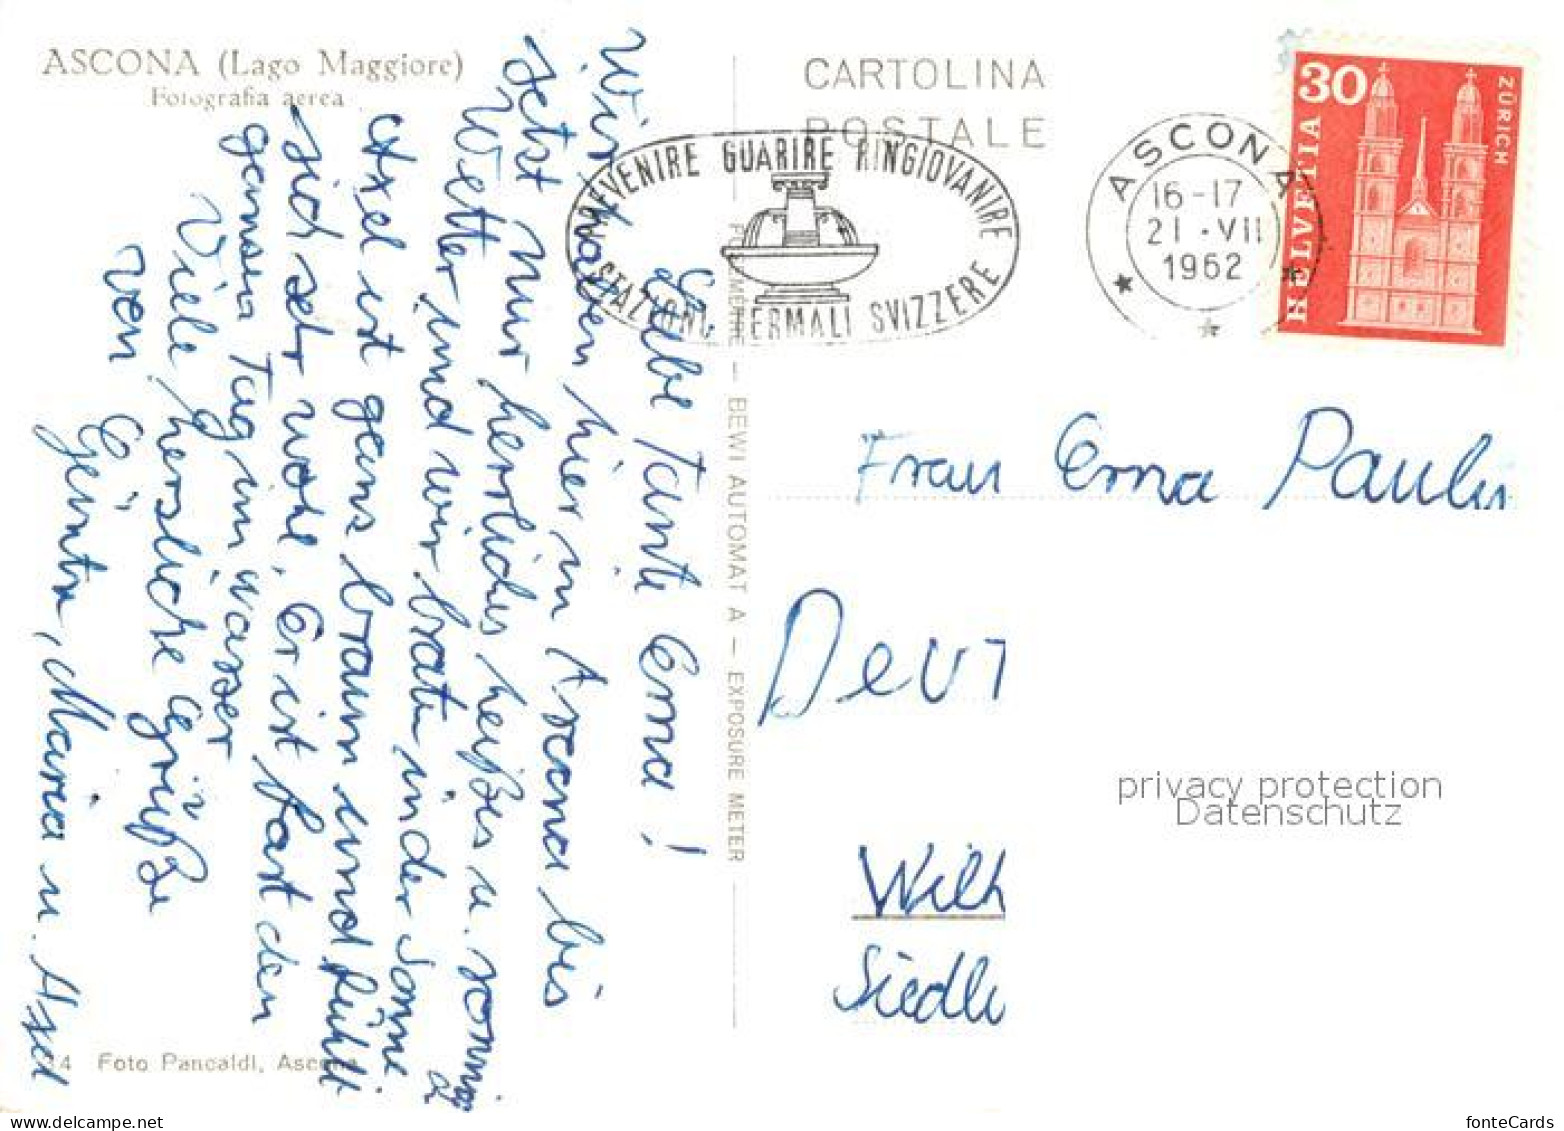 ASCONA (Lago Maggiore)
Fotografia aerea
CARTOLINA
POSTALE
PREVENIRE GUARIRE RINGIOVANIRE
STAZIONI TERMALI SVIZZERE
ASCONA
16-17
21·VII
1962
30
HELVETIA
ZÜRICH
Liebe Tante Erna!
Wir haben hier in Ascona bis
jetzt nur herrliches heißes u. sonniges
Wetter und wir braten in der Sonne
Axel ist ganz braun und fühlt
sich sehr wohl. Er ist fast den
ganzen Tag im Wasser
Viele herzliche Grüße
von
Günter, Maria u. Axel
POLMÈTRE — BEWI AUTOMAT A — EXPOSURE METER
Frau Erna Paulis
Deut
Wilh
Siedle
privacy protection
Datenschutz
34 Foto Pancaldi, Ascona
www.delcampe.net
fonteCards